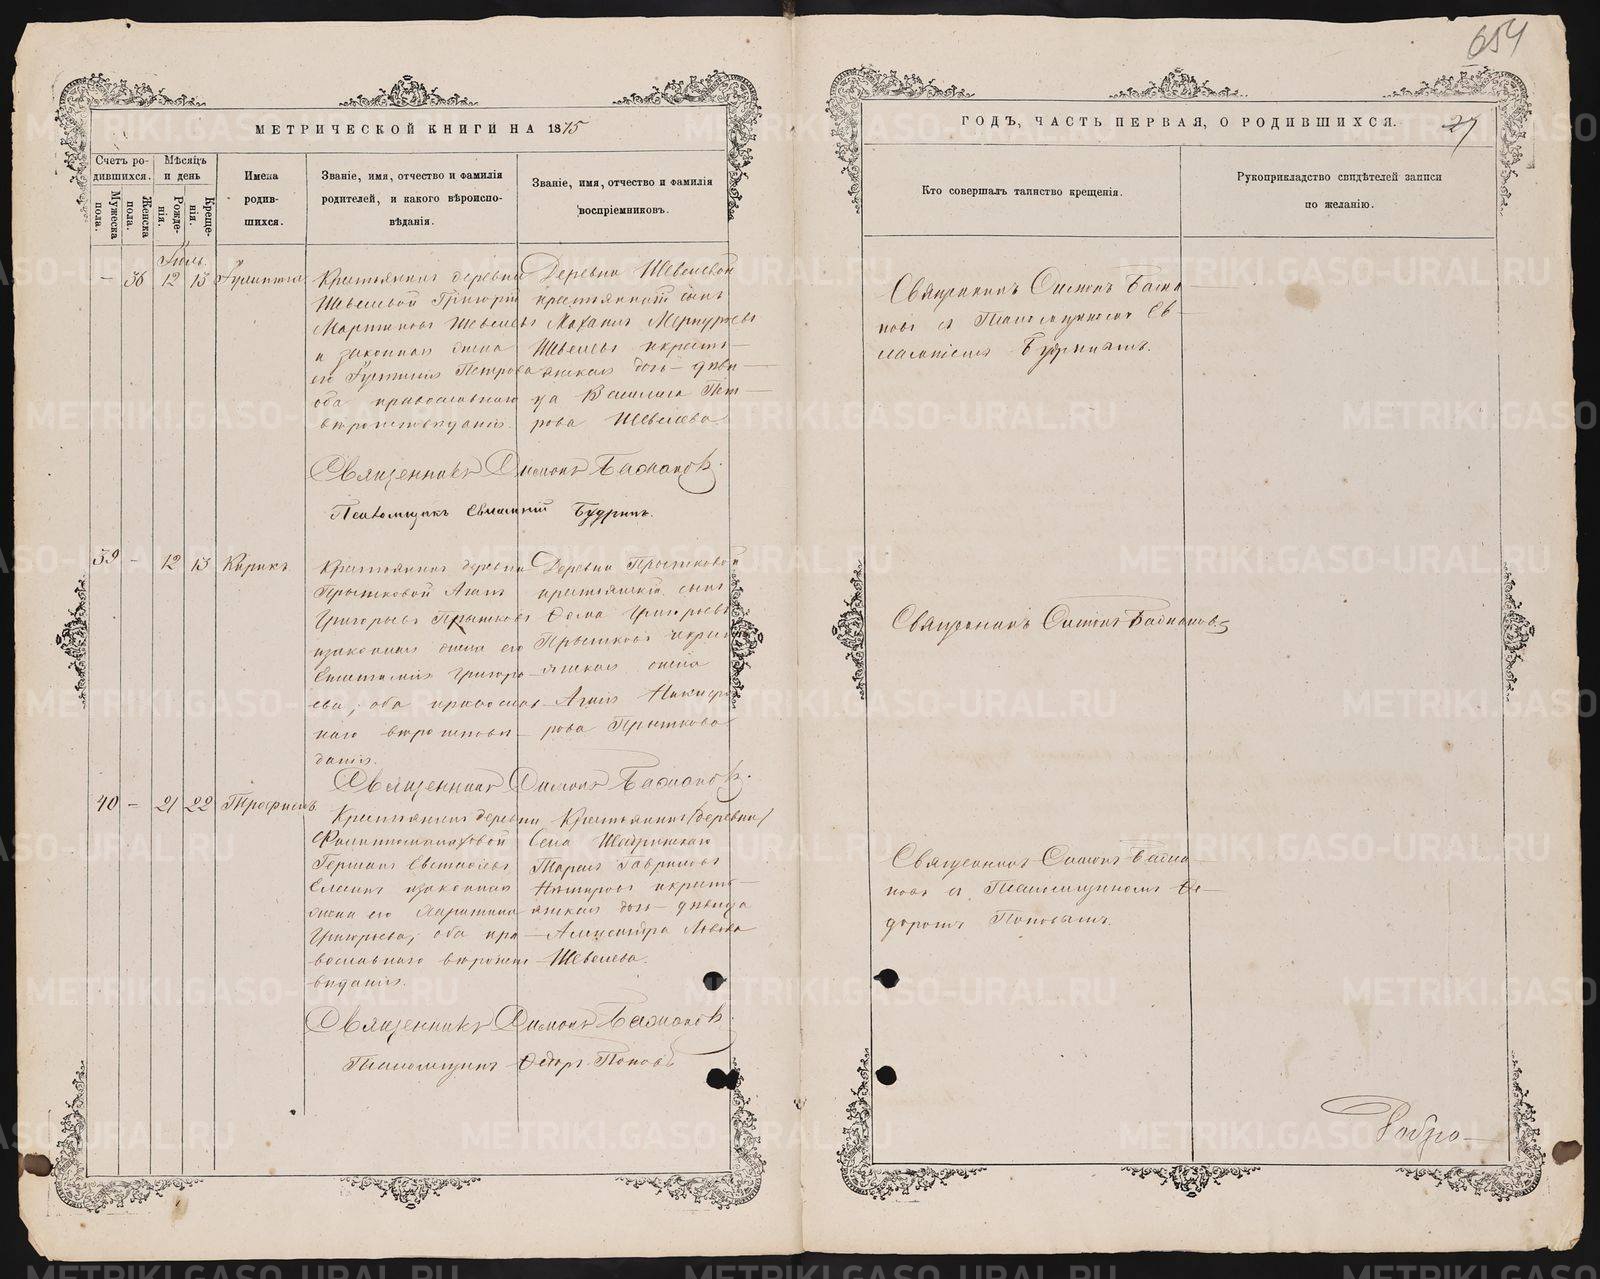 654
МЕТРИЧЕСКОЙ КНИГИ НА 1875
ГОДЪ, ЧАСТЬ ПЕРВАЯ, О РОДИВШИХСЯ.
27
Счетъ ро-
дившихся.
Мужеска
пола.
Женска
пола.
Мѣсяцъ
и день
Рожде-
нія.
Креще-
нія.
Имена
родив-
шихся.
Званіе, имя, отчество и фамилія
родителей, и какого вѣроиспо-
вѣданія.
Званіе, имя, отчество и фамилія
воспріемниковъ.
Кто совершалъ таинство крещенія.
Рукоприкладство свидѣтелей записи
по желанію.
Іюль.
— 36 12 13
Крестьянинъ деревни
Шевелевой Григорій
Мартиновъ Шевелевъ
и законная жена
его Іустинія Петрова
оба православнаго
вѣроисповѣданія.
Деревни Шевелевой
крестьянскій сынъ
Меркурьевъ
Шевелевъ и кресть-
янская дочь дѣви-
ца Василиса Пет-
рова Шевелева
Священникъ Симонъ Баженовъ
Псаломщикъ Евлампій Будринъ.
Священникъ Симонъ Баже-
новъ съ Псаломщикомъ Ев-
лампіемъ Будринымъ.
39 — 12 13 Кирикъ
Крестьянинъ деревни
Прытковой
Григорьевъ Прытковъ
и законная жена его
Григорь-
ева, оба православ-
наго вѣроисповѣ-
данія.
Деревни Прытковой
крестьянскій сынъ
Фома Григорьевъ
Прытковъ и кресть-
янская жена
Никифо-
рова Прыткова
Священникъ Симонъ Баженовъ.
Священникъ Симонъ Баженовъ
40 — 21 22 Трофимъ
Крестьянинъ деревни
Германъ
и законная
жена его
Григорьева, оба пра-
вославнаго вѣроиспо-
вѣданія.
Крестьянинъ (деревни)
Села
Тарасъ Гавриловъ
и кресть-
янская дочь дѣвица
Александра Львова
Шевелева.
Священникъ Симонъ Баженовъ.
Псаломщикъ Ѳедоръ Поповъ
Священникъ Симонъ Баже-
новъ съ Псаломщикомъ Ѳе-
доромъ Поповымъ.
METRIKI.GASO-URAL.RU